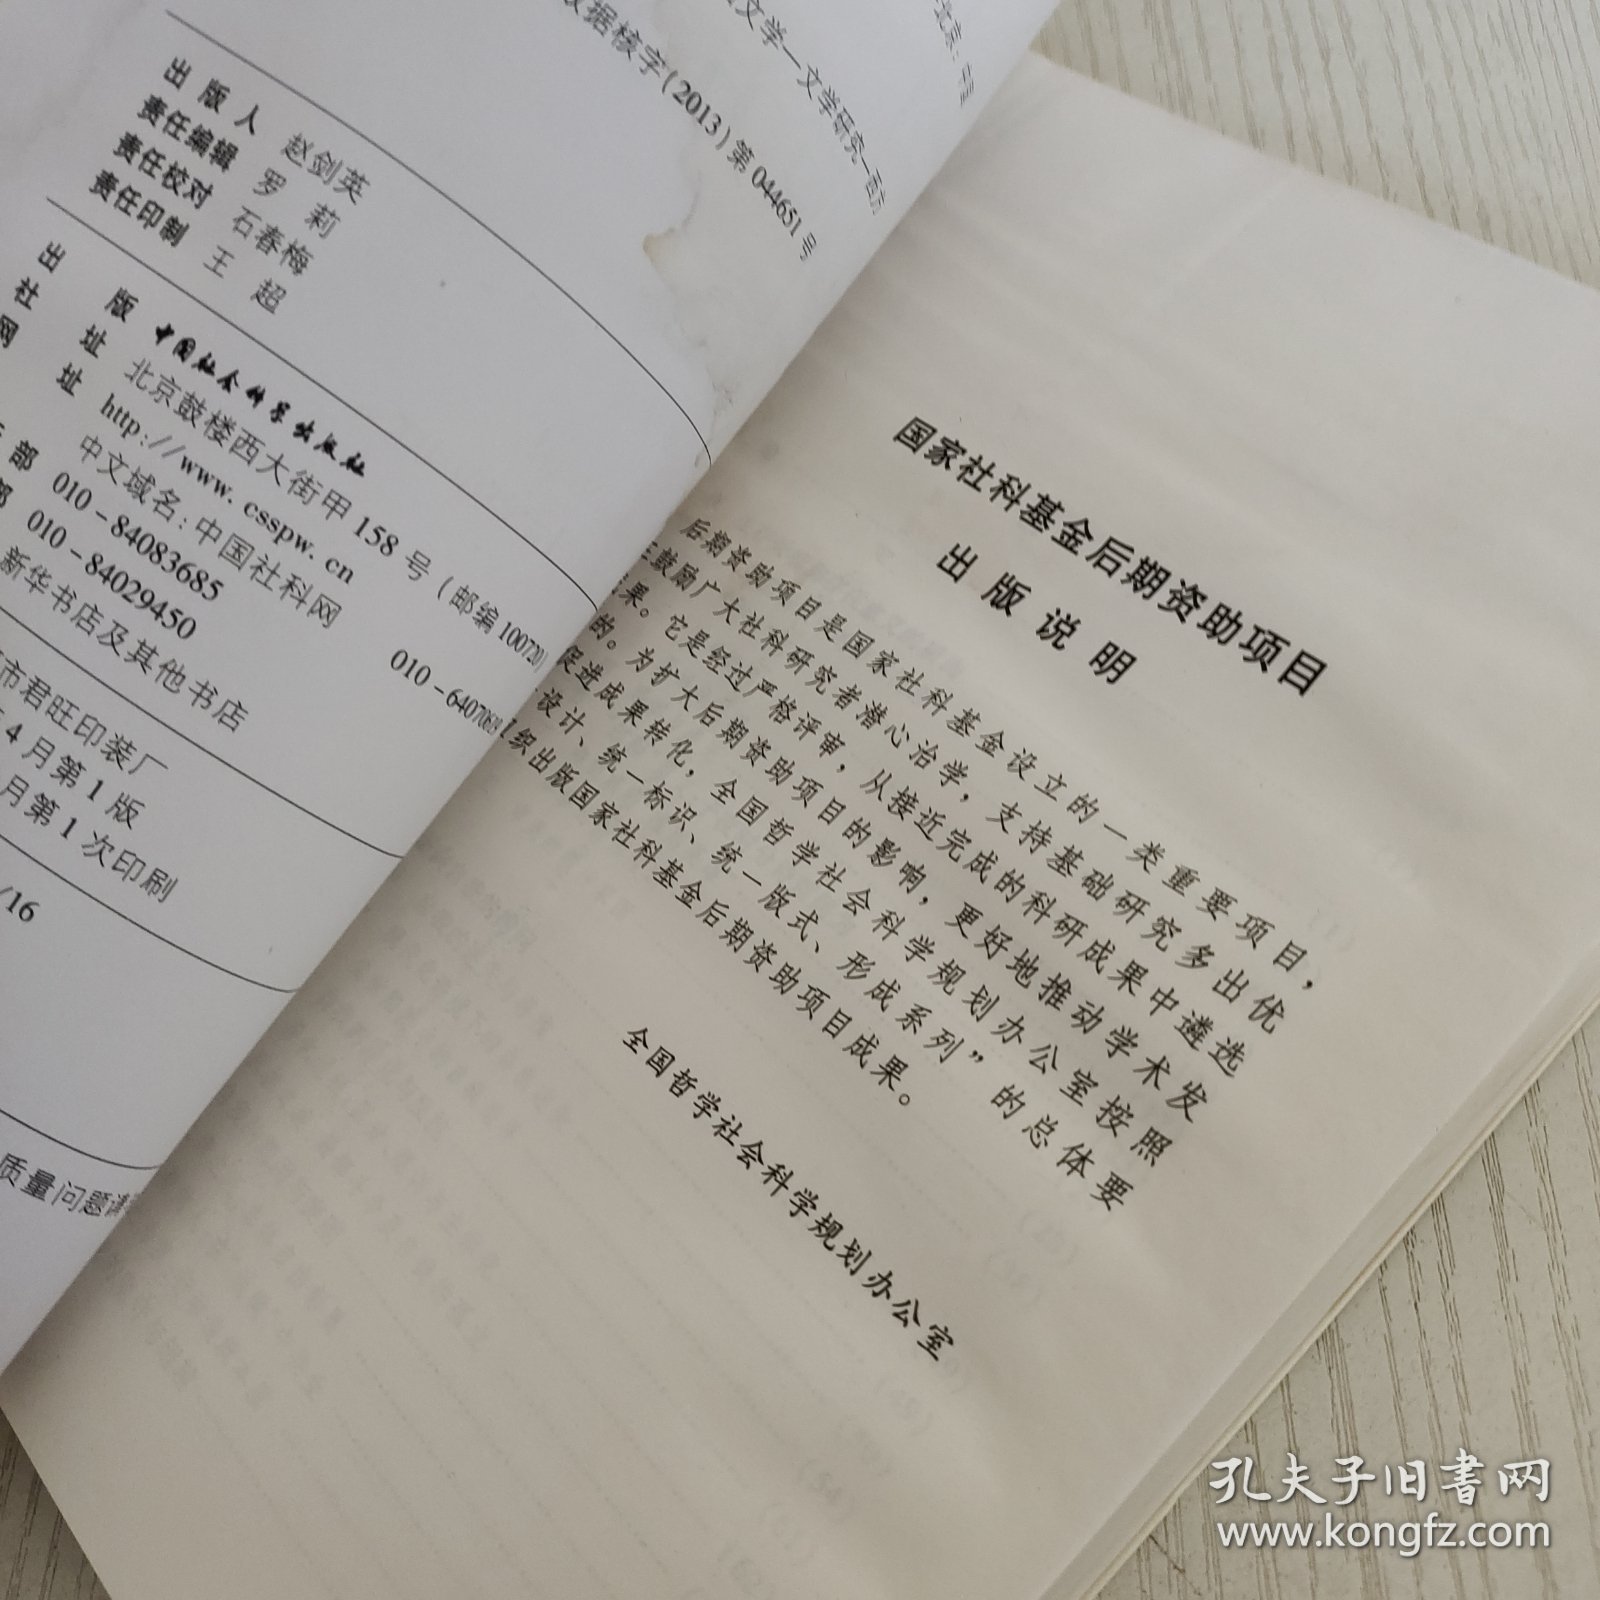 北京：中国
文学—文学研究—西方
数据核字(2013)第044651号
出版人 赵剑英
责任编辑 罗莉
责任校对 石春梅
责任印制 王超
出版 中国社会科学出版社
社址 北京鼓楼西大街甲158号（邮编100720）
网址 http://www.csspw.cn
中文域名:中国社科网 010-64070619
部 010-84083685
部 010-84029450
新华书店及其他书店
市君旺印装厂
4月第1版
月第1次印刷
/16
质量问题请
国家社科基金后期资助项目
出版说明
后期资助项目是国家社科基金设立的一类重要项目，
鼓励广大社科研究者潜心治学，支持基础研究多出优
果。它是经过严格评审，从接近完成的科研成果中遴选
的。为扩大后期资助项目的影响，更好地推动学术发
促进成果转化，全国哲学社会科学规划办公室按照
设计、统一标识、统一版式、形成系列”的总体要
织出版国家社科基金后期资助项目成果。
全国哲学社会科学规划办公室
孔夫子旧书网
www.kongfz.com